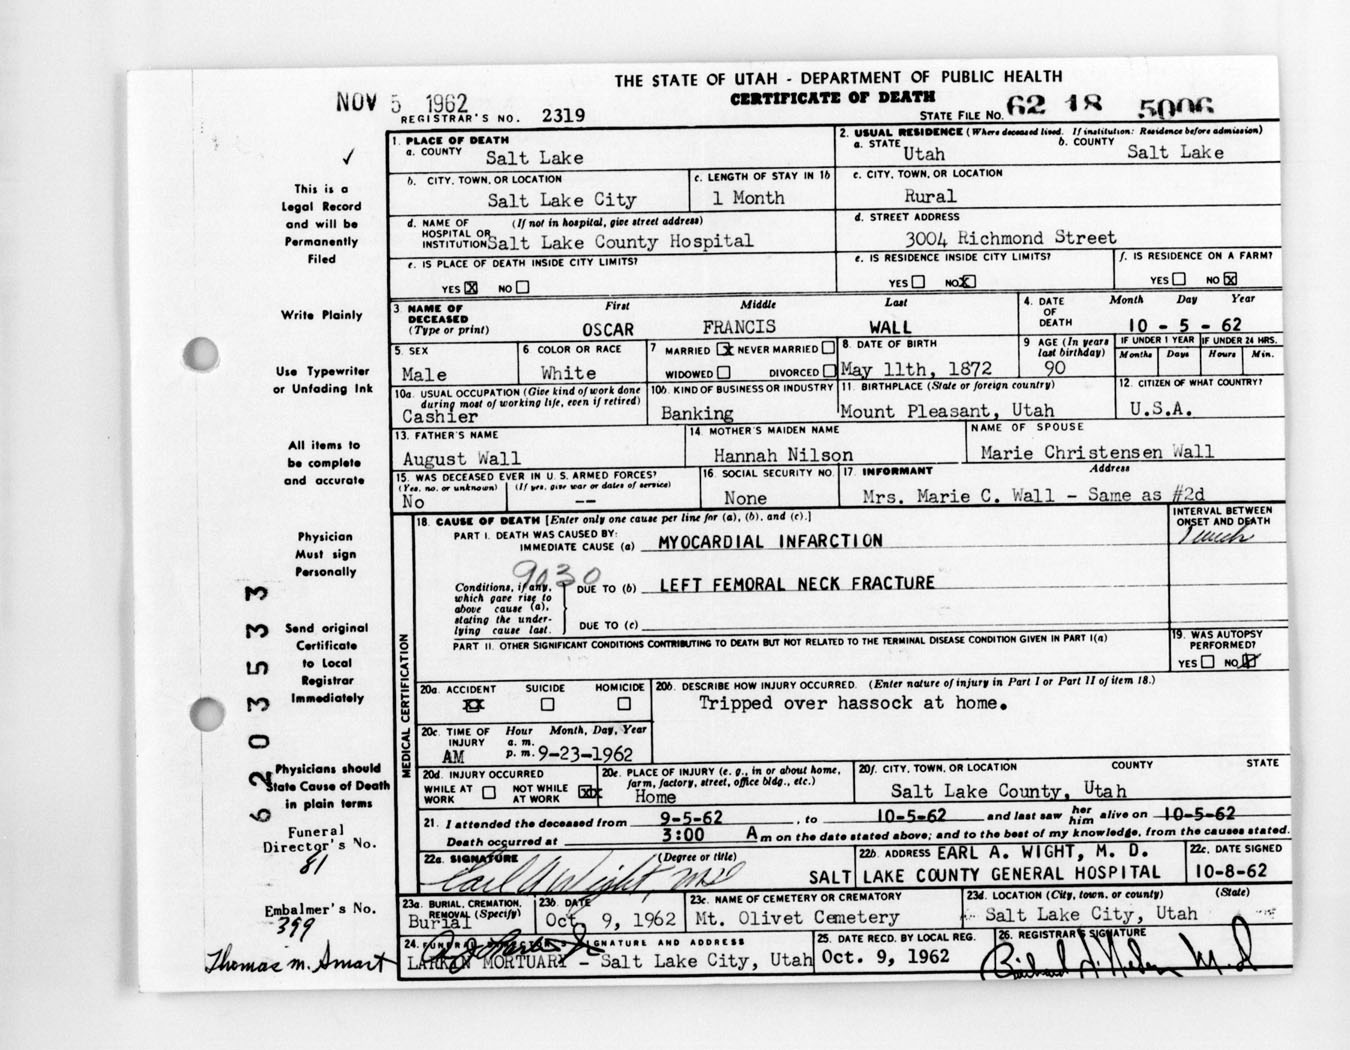 THE STATE OF UTAH - DEPARTMENT OF PUBLIC HEALTH
CERTIFICATE OF DEATH
NOV 5 1962
REGISTRAR'S NO. 2319
STATE FILE NO. 62 18 5006
This is a
Legal Record
and will be
Permanently
Filed
Write Plainly
Use Typewriter
or Unfading Ink
All items to
be complete
and accurate
Physician
Must sign
Personally
Send original
Certificate
to Local
Registrar
Immediately
Physicians should
State Cause of Death
in plain terms
Funeral
Director's No.
81
Embalmer's No.
399
Thomas M. Smart
620353 3
1. PLACE OF DEATH
a. COUNTY Salt Lake
2. USUAL RESIDENCE (Where deceased lived. If institution: Residence before admission)
a. STATE Utah b. COUNTY Salt Lake
b. CITY, TOWN, OR LOCATION
Salt Lake City
c. LENGTH OF STAY IN 1b
1 Month
c. CITY, TOWN, OR LOCATION
Rural
d. NAME OF (If not in hospital, give street address)
HOSPITAL OR
INSTITUTION Salt Lake County Hospital
d. STREET ADDRESS
3004 Richmond Street
e. IS PLACE OF DEATH INSIDE CITY LIMITS?
YES X NO
e. IS RESIDENCE INSIDE CITY LIMITS?
YES NO X
f. IS RESIDENCE ON A FARM?
YES NO X
3. NAME OF DECEASED (Type or print)
First Middle Last
OSCAR FRANCIS WALL
4. DATE OF DEATH
Month Day Year
10 - 5 - 62
5. SEX
Male
6 COLOR OR RACE
White
7 MARRIED X NEVER MARRIED
WIDOWED DIVORCED
8. DATE OF BIRTH
May 11th, 1872
9 AGE (In years last birthday)
90
IF UNDER 1 YEAR IF UNDER 24 HRS.
Months Days Hours Min.
10a. USUAL OCCUPATION (Give kind of work done during most of working life, even if retired)
Cashier
10b. KIND OF BUSINESS OR INDUSTRY
Banking
11. BIRTHPLACE (State or foreign country)
Mount Pleasant, Utah
12. CITIZEN OF WHAT COUNTRY?
U.S.A.
13. FATHER'S NAME
August Wall
14. MOTHER'S MAIDEN NAME
Hannah Nilson
NAME OF SPOUSE
Marie Christensen Wall
15. WAS DECEASED EVER IN U.S. ARMED FORCES?
(Yes, no, or unknown) (If yes, give war or dates of service)
No --
16. SOCIAL SECURITY NO.
None
17. INFORMANT Address
Mrs. Marie C. Wall - Same as #2d
MEDICAL CERTIFICATION
18. CAUSE OF DEATH [Enter only one cause per line for (a), (b), and (c).]
INTERVAL BETWEEN ONSET AND DEATH
PART I. DEATH WAS CAUSED BY:
IMMEDIATE CAUSE (a) MYOCARDIAL INFARCTION
9030
Conditions, if any, which gave rise to above cause (a), stating the underlying cause last.
DUE TO (b) LEFT FEMORAL NECK FRACTURE
DUE TO (c)
PART II. OTHER SIGNIFICANT CONDITIONS CONTRIBUTING TO DEATH BUT NOT RELATED TO THE TERMINAL DISEASE CONDITION GIVEN IN PART I(a)
19. WAS AUTOPSY PERFORMED?
YES NO X
20a. ACCIDENT SUICIDE HOMICIDE
XX
20b. DESCRIBE HOW INJURY OCCURRED. (Enter nature of injury in Part I or Part II of item 18.)
Tripped over hassock at home.
20c. TIME OF INJURY Hour Month, Day, Year
a. m.
AM p. m. 9-23-1962
20d. INJURY OCCURRED
WHILE AT WORK NOT WHILE AT WORK XX
20e. PLACE OF INJURY (e. g., in or about home, farm, factory, street, office bldg., etc.)
Home
20f. CITY, TOWN, OR LOCATION COUNTY STATE
Salt Lake County, Utah
21. I attended the deceased from 9-5-62, to 10-5-62 and last saw her him alive on 10-5-62
Death occurred at 3:00 A m on the date stated above; and to the best of my knowledge, from the causes stated.
22a. SIGNATURE (Degree or title)
Earl A Wight, MD
22b. ADDRESS EARL A. WIGHT, M. D.
SALT LAKE COUNTY GENERAL HOSPITAL
22c. DATE SIGNED
10-8-62
23a. BURIAL, CREMATION, REMOVAL (Specify)
Burial
23b. DATE
Oct 9, 1962
23c. NAME OF CEMETERY OR CREMATORY
Mt. Olivet Cemetery
23d. LOCATION (City, town, or county) (State)
Salt Lake City, Utah
24. FUNERAL DIRECTOR'S SIGNATURE AND ADDRESS
LARKIN MORTUARY - Salt Lake City, Utah
25. DATE RECD. BY LOCAL REG.
Oct. 9, 1962
26. REGISTRAR'S SIGNATURE